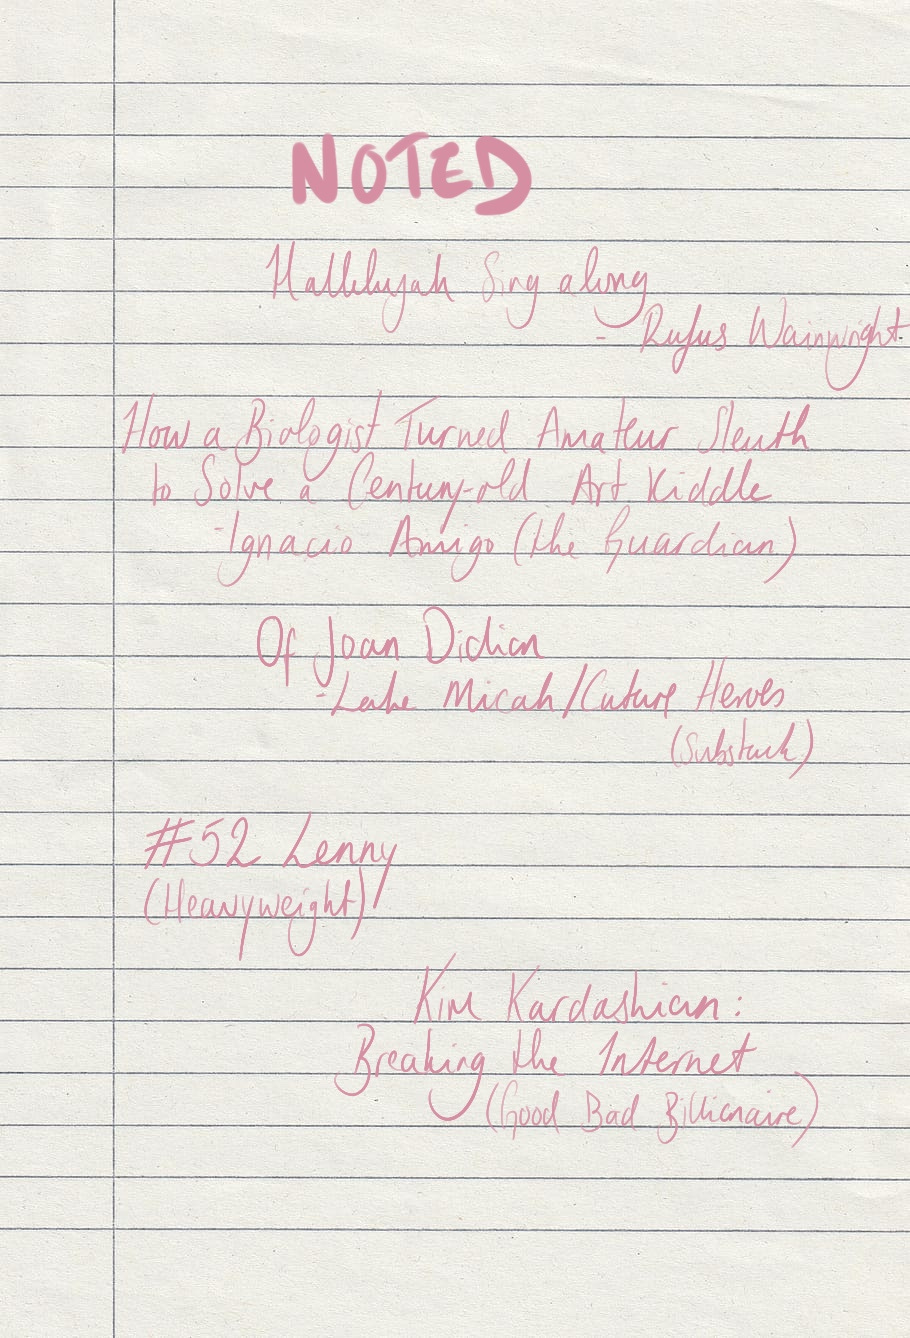 NOTED
Hallelujah Sing along
- Rufus Wainwright
How a Biologist Turned Amateur Sleuth
to Solve a Century-old Art Riddle
- Ignacio Amigo (the Guardian)
Of Joan Didion
- Micah/Culture Heroes
(Substack)
#52 Lenny
(Heavyweight)
Kim Kardashian:
Breaking the Internet
(Good Bad Billionaire)